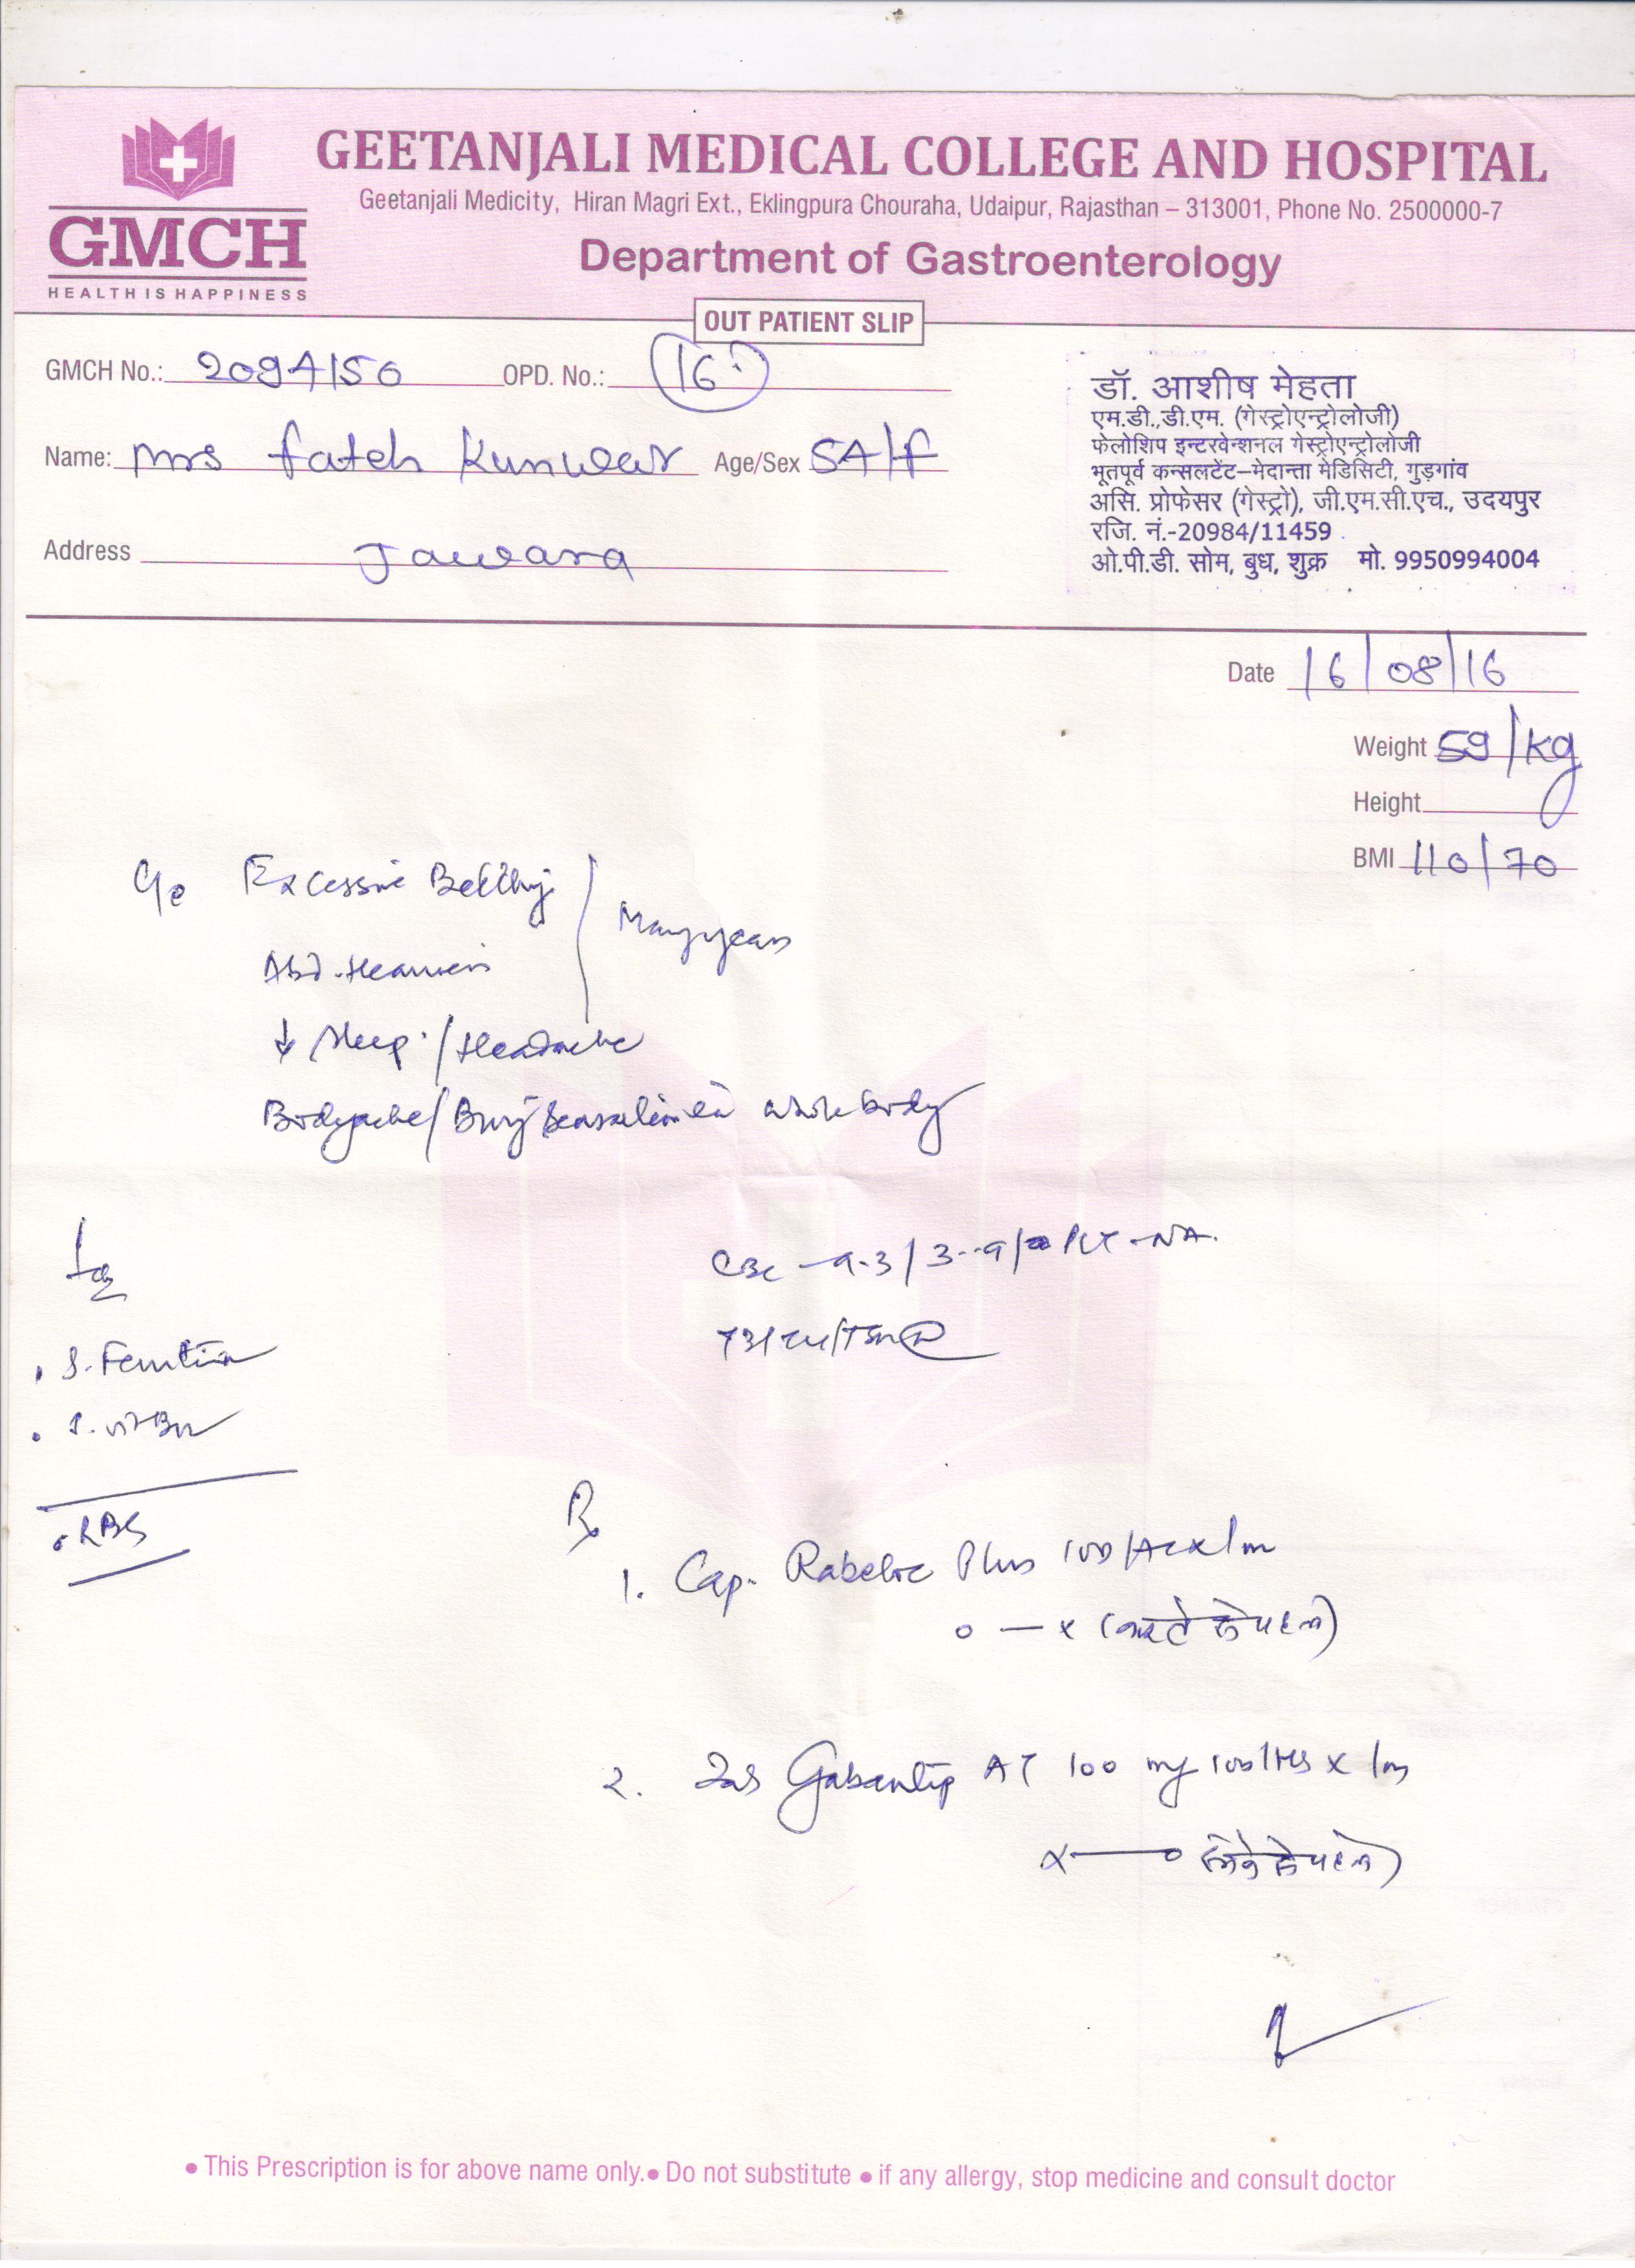 GEETANJALI MEDICAL COLLEGE AND HOSPITAL
Geetanjali Medicity, Hiran Magri Ext., Eklingpura Chouraha, Udaipur, Rajasthan – 313001, Phone No. 2500000-7
GMCH
HEALTH IS HAPPINESS
Department of Gastroenterology
OUT PATIENT SLIP
GMCH No.: 2094150 OPD. No.: 16
Name: Mrs Fateh Kunwar Age/Sex 54/F
Address Jawara
डॉ. आशीष मेहता
एम.डी.,डी.एम. (गेस्ट्रोएन्ट्रोलोजी)
फेलोशिप इन्टरवेन्शनल गेस्ट्रोएन्ट्रोलोजी
भूतपूर्व कन्सलटेंट–मेदान्ता मेडिसिटी, गुड़गांव
असि. प्रोफेसर (गेस्ट्रो), जी.एम.सी.एच., उदयपुर
रजि. नं.-20984/11459
ओ.पी.डी. सोम, बुध, शुक्र मो. 9950994004
Date 16/08/16
Weight 59/kg
Height
BMI 110/70
C/o Excessive Belching
Many years
Abd. Heaviness
↓ Sleep / Headache
Bodyache / Burning Sensation in whole body
CBC - 9.3 / 3.9 / PLT - NA.
T3/T4/TSH
S. Ferritin
S. Vit B12
RBS
Rx
1. Cap. Rabeloc Plus 1OD/AC x 1m
o — x (नाश्ते से पहले)
2. Tab Gabantip AT 100 mg 1OD/HS x 1m
x — o (सोने से पहले)
• This Prescription is for above name only. • Do not substitute • if any allergy, stop medicine and consult doctor